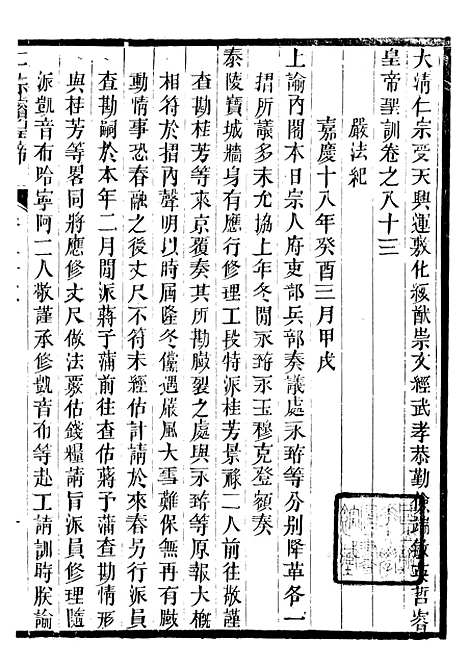 大清仁宗受天興運敷化綏猷崇文經武孝恭勤儉端敏英哲睿
皇帝聖訓卷之八十三
嚴法紀
嘉慶十八年癸酉三月甲戌
上諭內閣本日宗人府吏部兵部奏議處永㻞等分别降革各一
摺所議多未允協上年冬閒永㻞永玉穆克登額奏
泰陵寶城牆身有應行修理工段特派桂芳景祿二人前往敬謹
查勘桂芳等來京覆奏其所勘臌裂之處與永㻞等原報大槪
相符於摺內聲明以時屆隆冬儻遇嚴風大雪難保無再有臌
動情事恐春融之後丈尺不符未經估計請於來春另行派員
查勘嗣於本年二月閒派蔣予蒲前往查估蔣予蒲查勘情形
與桂芳等畧同將應修丈尺做法覈估錢糧請旨派員修理隨
派凱音布哈寧阿二人敬謹承修凱音布等赴工請訓時朕諭
仁宗睿皇帝